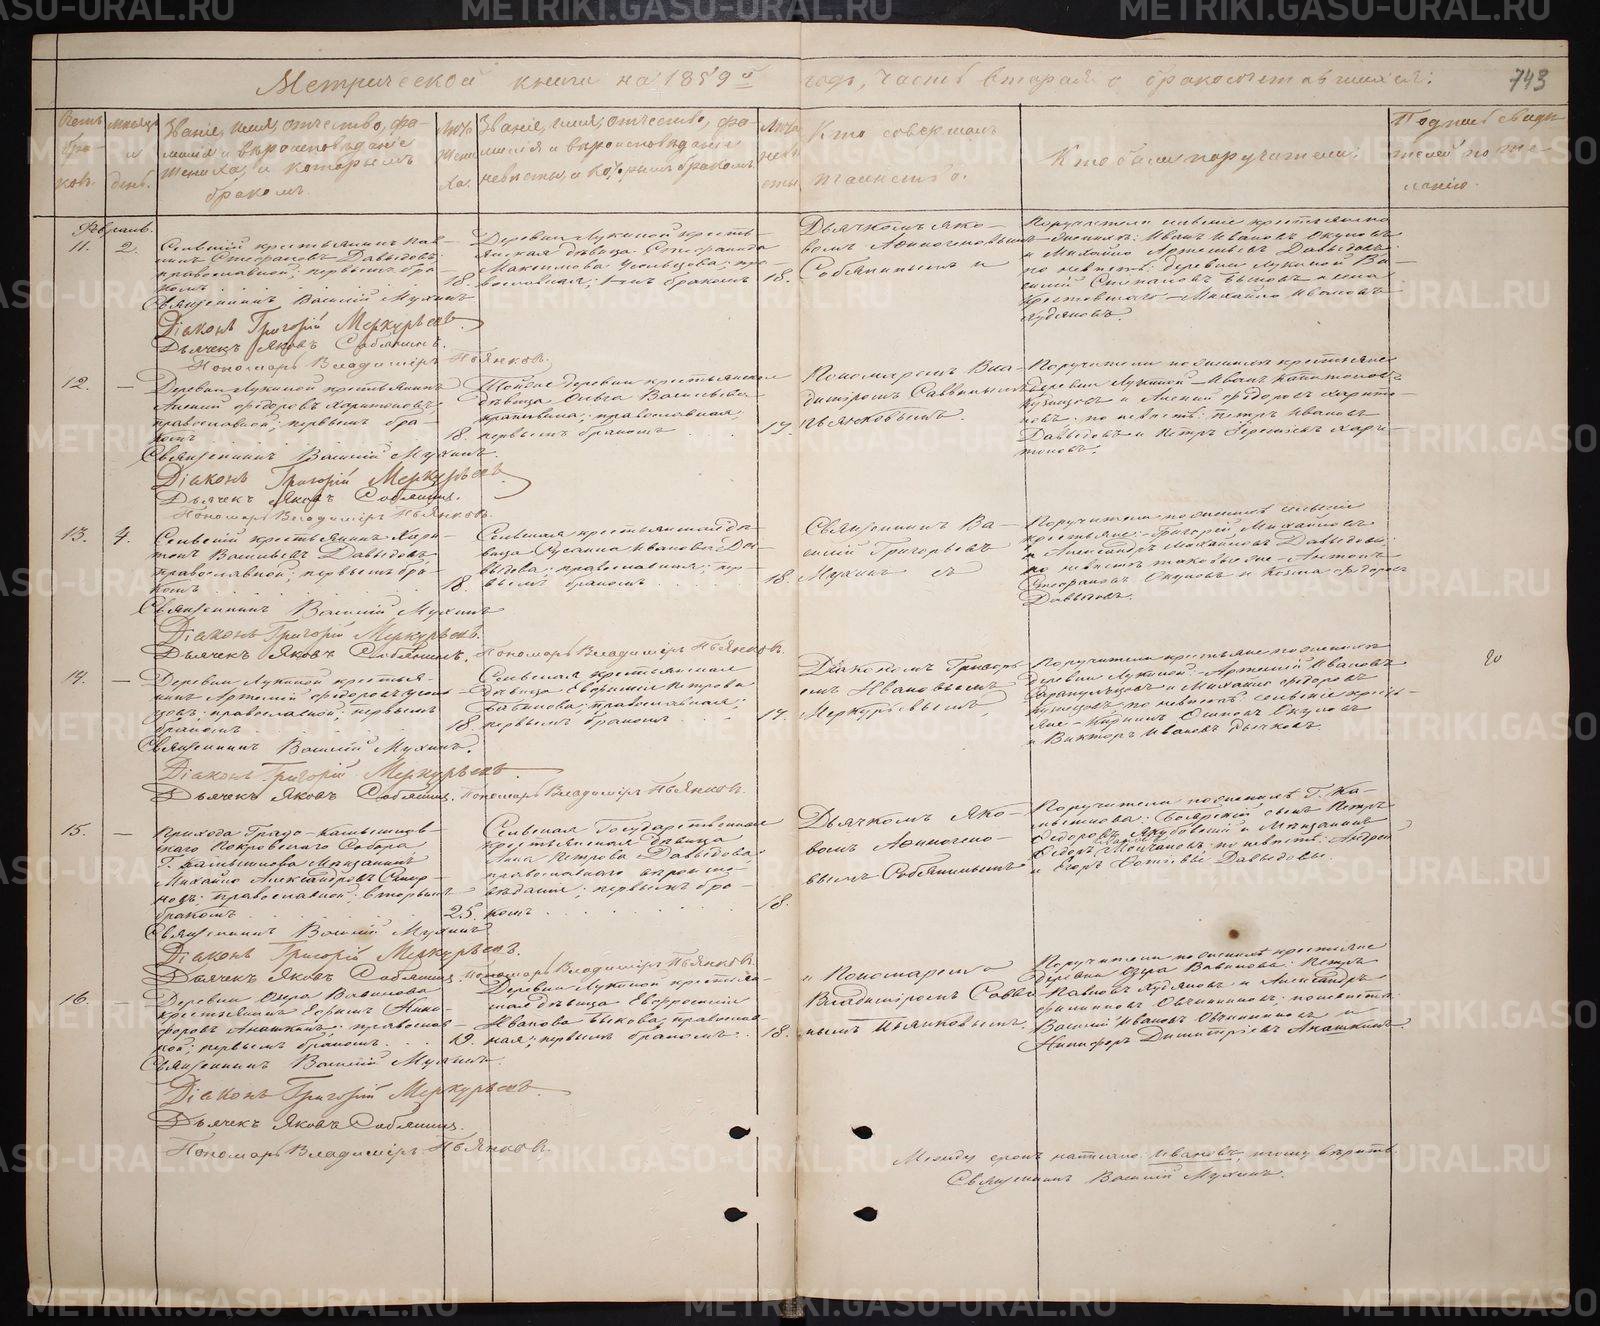 METRIKI.GASO-URAL.RU
Метрической книги на 1859й годъ, часть вторая о бракосочетавшихся:
743
Счетъ браковъ.
Мѣсяцъ и день.
Званіе, имя, отчество, фа-
милія и вѣроисповѣданіе
жениха, и которымъ
бракомъ.
Лѣта жениха.
Званіе, имя, отчество, фа-
милія и вѣроисповѣданіе
невѣсты, и которымъ бракомъ.
Лѣта невѣсты.
Кто совершалъ
таинство.
Кто были поручители:
Подпись свидѣ-
телей по же-
ланію.
Февраль.
11. 2.
Сельскій крестьянинъ Пав-
линъ Стефановъ Давыдовъ;
православной; первымъ бра-
комъ
18.
Деревни Лукиной кресть-
янская дѣвица Стефанида
Максимова Усольцова; пра-
вославная; 1-мъ бракомъ
18.
Дьячкомъ Яко-
вомъ Афиногеновымъ
Собянинымъ и
Поручители сельскіе крестьяне по
женихѣ: Иванъ Ивановъ Окуловъ
и Михайло Артемьевъ Давыдовъ;
по невѣстѣ: деревни Лукиной Ва-
силій Степановъ Быковъ и села
Крестовскаго Михайло Ивановъ
Худяковъ.
Священникъ Василій Мухинъ
Діаконъ Григорій Меркурьевъ.
Дьячекъ Яковъ Собянинъ.
Пономарь Владиміръ Пьянковъ.
12. —
Деревни Лукиной крестьянинъ
Алексѣй Ѳедоровъ Харитоновъ;
православной; первымъ бра-
комъ
18.
деревни крестьянская
дѣвица Ольга Васильева
православная;
первымъ бракомъ
17.
Пономаремъ Вла-
диміромъ Саввинымъ
Пьянковымъ.
Поручители по женихѣ крестьяне
деревни Лукиной — Иванъ Капитоновъ
Кузнецовъ и Алексѣй Ѳедоровъ Харито-
новъ; по невѣстѣ: Петръ Ивановъ
Давыдовъ и Петръ Хари-
тоновъ.
Священникъ Василій Мухинъ.
Діаконъ Григорій Меркурьевъ
Дьячекъ Яковъ Собянинъ.
Пономарь Владиміръ Пьянковъ.
13. 4.
Сельскій крестьянинъ Хари-
тонъ Васильевъ Давыдовъ
православной; первымъ бра-
комъ
18.
Сельская крестьянская дѣ-
вица Сусанна Иванова Да-
выдова; православная; пер-
вымъ бракомъ
18.
Священникъ Ва-
силій Григорьевъ
Мухинъ съ
Поручители по женихѣ сельскіе
крестьяне: Григорій Михайловъ
и Александръ Михайловъ Давыдовы;
по невѣстѣ таковые же — Антонъ
Стефановъ Окуловъ и Козма Ѳедоровъ
Давыдовъ.
Священникъ Василій Мухинъ
Діаконъ Григорій Меркурьевъ.
Дьячекъ Яковъ Собянинъ. Пономарь Владиміръ Пьянковъ.
14. —
Деревни Лукиной крестья-
нинъ Артемій Ѳедоровъ Усоль-
цовъ; православной; первымъ
бракомъ
18.
Сельская крестьянская
дѣвица Петрова
православная;
первымъ бракомъ
17.
Діакономъ Григорь-
емъ Ивановымъ
Меркурьевымъ,
Поручители крестьяне по женихѣ
деревни Лукиной: Артемій Ивановъ
и Михайло Ѳедоровъ
Кузнецовъ; по невѣстѣ: сельскіе кресть-
яне — Осиповъ Окуловъ
и Викторъ Ивановъ Дьячковъ.
20
Священникъ Василій Мухинъ.
Діаконъ Григорій Меркурьевъ
Дьячекъ Яковъ Собянинъ. Пономарь Владиміръ Пьянковъ.
15. —
Прихода Градо-Камышлов-
скаго Покровскаго Собора
Г. Камышлова Мѣщанинъ
Михайло Александровъ
православной; вторымъ
бракомъ
25.
Сельская Государственная
крестьянская дѣвица
Анна Петрова Давыдова;
православнаго вѣроиспо-
вѣданія; первымъ бра-
комъ
18.
Дьячкомъ Яко-
вомъ Афиногено-
вымъ Собянинымъ
Поручители по женихѣ Г. Ка-
мышлова: Петръ
Ѳедоровъ и Мѣщанинъ
Ѳедоръ Ивановъ по невѣстѣ: Андрей
и Егоръ Давыдовы.
Священникъ Василій Мухинъ
Діаконъ Григорій Меркурьевъ.
Дьячекъ Яковъ Собянинъ. Пономарь Владиміръ Пьянковъ.
16. —
Деревни Озера Вавилова
крестьянинъ Борисъ Ники-
форовъ Анашкинъ; православ-
ной; первымъ бракомъ
19.
Деревни Лукиной крестьян-
ская дѣвица Евфросинія
Иванова Быкова; православ-
ная; первымъ бракомъ
18.
и Пономаремъ
Владиміромъ Савви-
нымъ Пьянковымъ.
Поручители по женихѣ крестьяне
деревни Озера Вавилова: Петръ
Павловъ Худяковъ и Александръ
Филиповъ Овчинниковъ; по невѣстѣ:
Василій Ивановъ Овчинниковъ и
Никифоръ Димитріевъ Анашкинъ.
Священникъ Василій Мухинъ
Діаконъ Григорій Меркурьевъ.
Дьячекъ Яковъ Собянинъ.
Пономарь Владиміръ Пьянковъ.
Между строкъ написано: Ивановъ, тому вѣрить
Священникъ Василій Мухинъ.